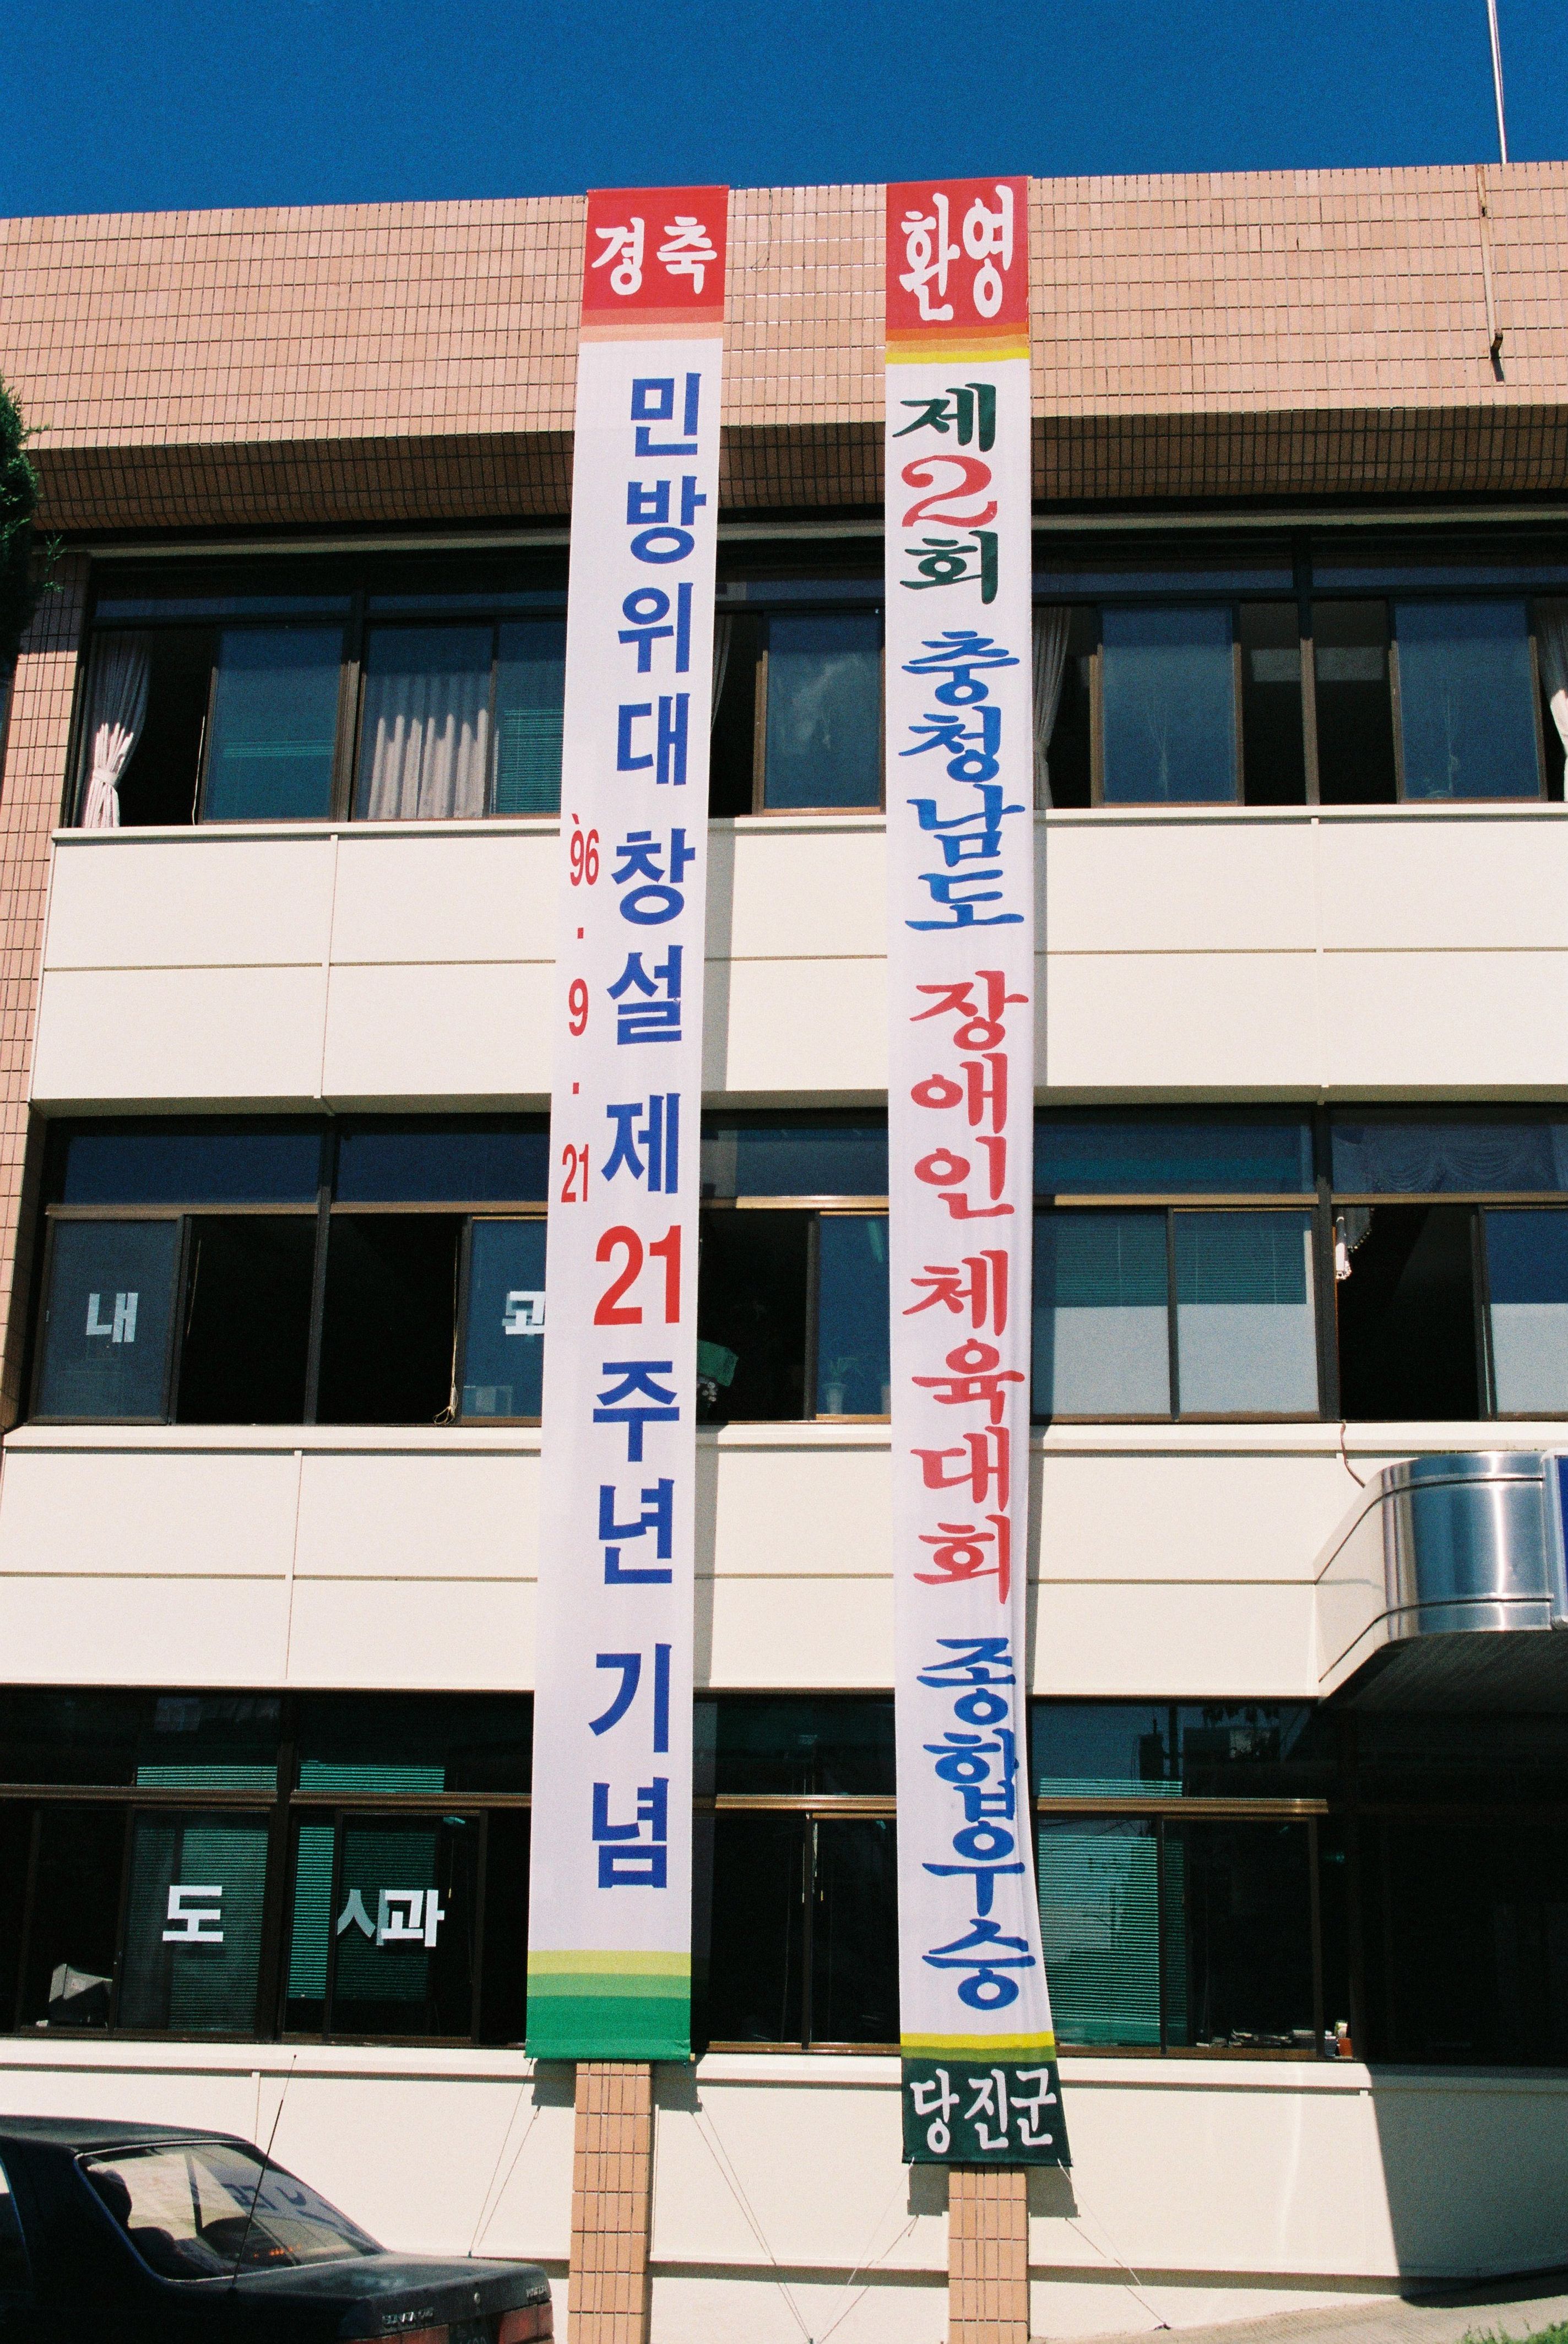 경축
민방위대 창설 제21주년 기념
'96.9.21
환영
제2회 충청남도 장애인 체육대회 종합우승
당진군
내
도시과